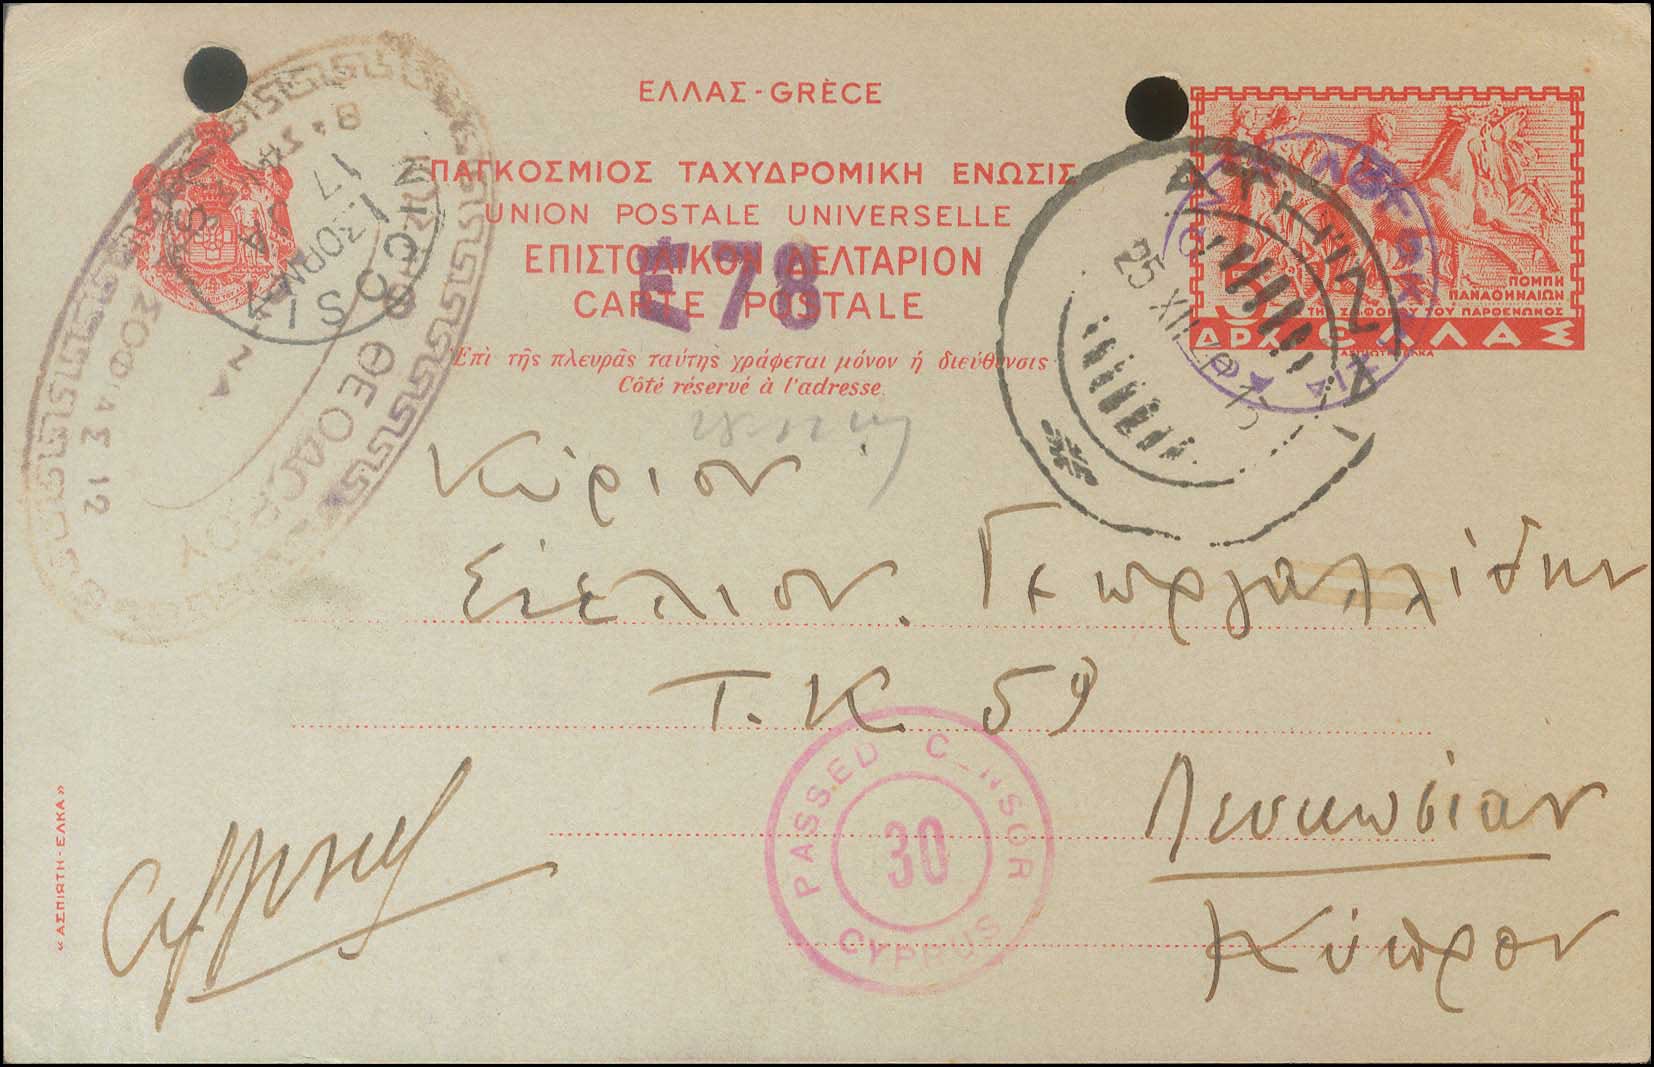 ΕΛΛΑΣ - GRÈCE
ΠΑΓΚΟΣΜΙΟΣ ΤΑΧΥΔΡΟΜΙΚΗ ΕΝΩΣΙΣ
UNION POSTALE UNIVERSELLE
ΕΠΙΣΤΟΛΙΚΟΝ ΔΕΛΤΑΡΙΟΝ
CARTE POSTALE
E78
Ἐπὶ τῆς πλευρᾶς ταύτης γράφεται μόνον ἡ διεύθυνσις
Côté réservé à l'adresse.
ΠΟΜΠΗ
ΠΑΝΑΘΗΝΑΙΩΝ
ΤΗΣ ΖΩΦΟΡΟΥ ΤΟΥ ΠΑΡΘΕΝΩΝΟΣ
ΔΡΧ ΕΛΛΑΣ
ΑΘΗΝΑΙ
25 XII
NICOSIA
1730PM
ΘΕΟΔΩΡΟΥ
ΣΟΦΙΑΣ 12
Κύριον
Εὐέλιον Γεωργαλλίδην
Τ.Κ. 59
Λευκωσίαν
Κύπρον
PASSED CENSOR
30
CYPRUS
«ΑΣΠΙΩΤΗ-ΕΛΚΑ»